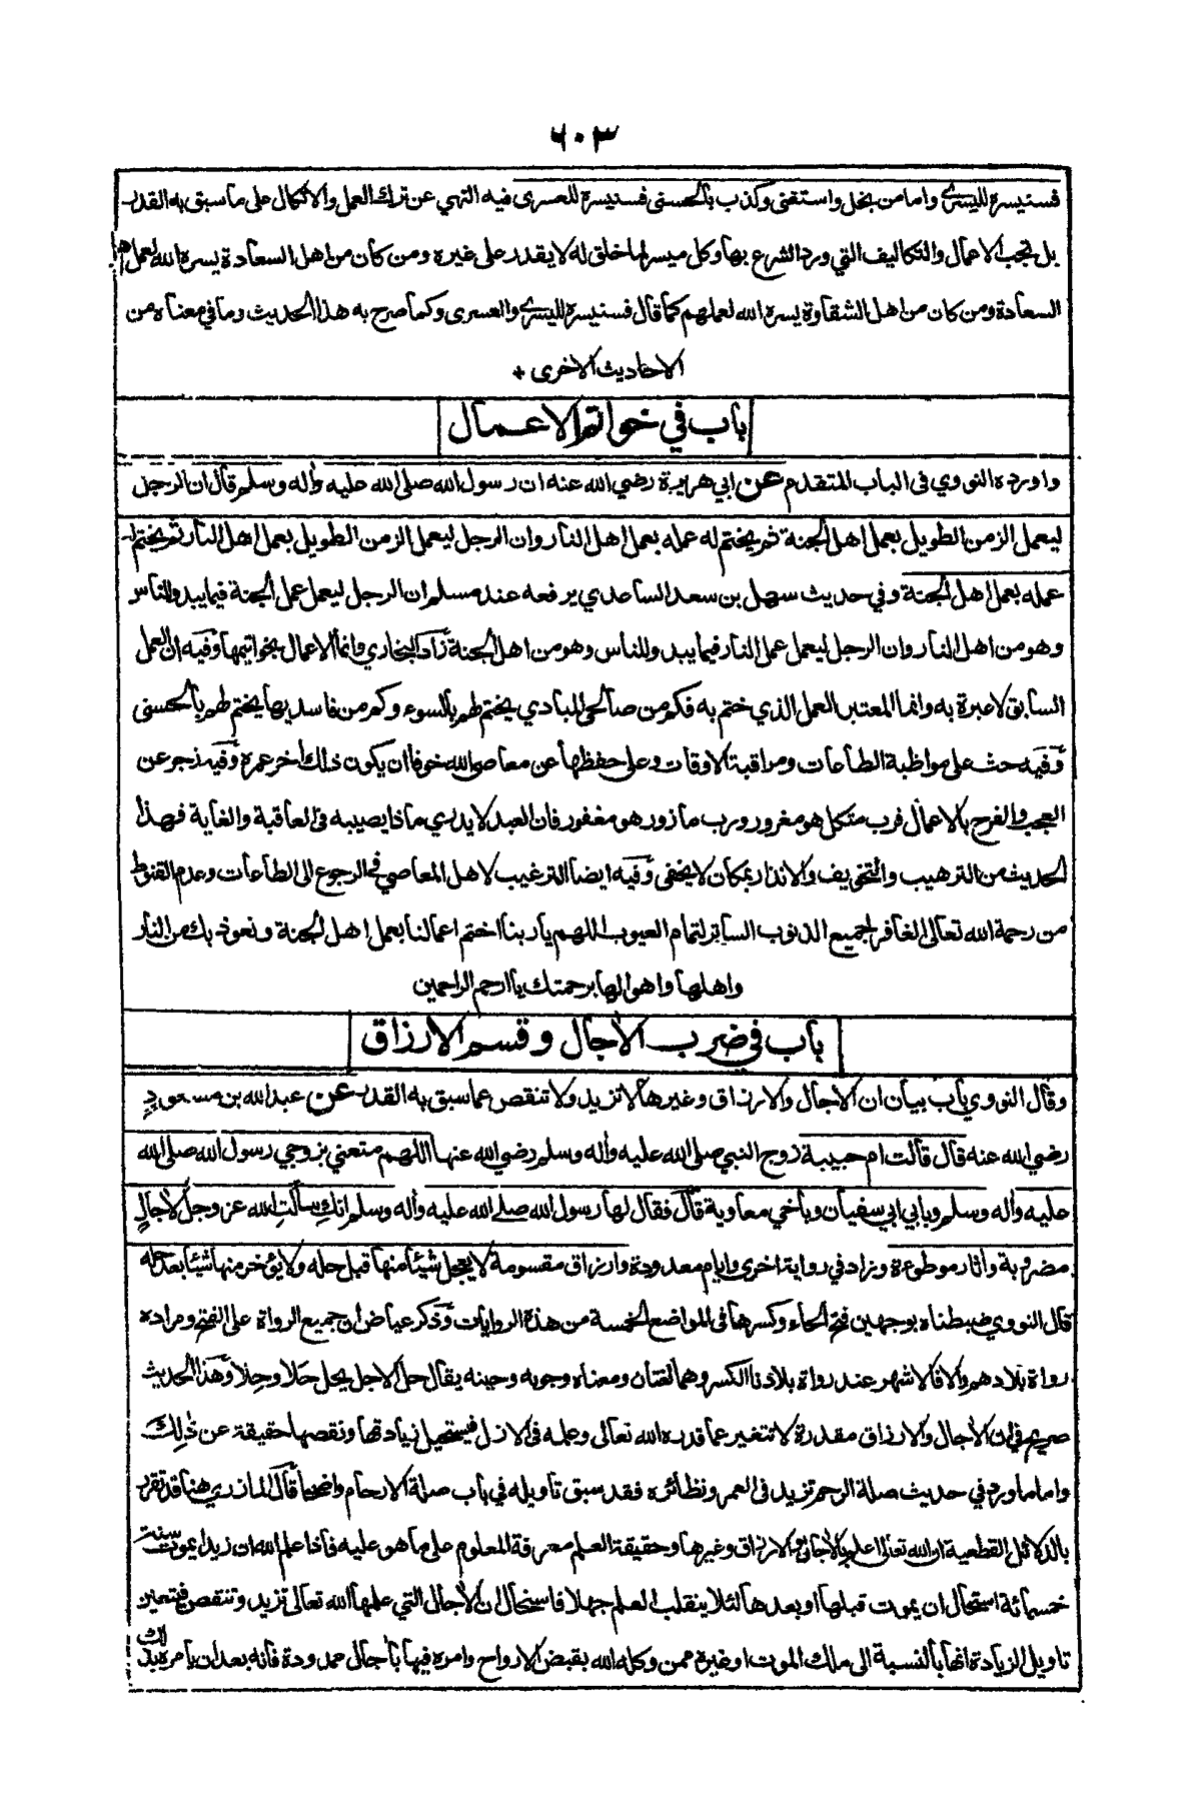 ٦٠٣
فسنيسره لليسرى واما من بخل واستغنى وكذب بالحسنى فسنيسره للعسرى فيه النهي عن ترك العمل والاتكال على ما سبق به القدر
بل تجب الاعمال والتكاليف التي ورد الشرع بها وكل ميسر لما خلق له لا يقدر على غيره ومن كان من اهل السعادة يسره الله لعمل اهل
السعادة ومن كان من اهل الشقاوة يسره الله لعملهم كما قال فسنيسره لليسرى والعسرى وكما صرح به هذا الحديث وما في معناه من
الاحاديث الاخرى +
باب في خواتم الاعمال
واورده النووي فى الباب المتقدم عن ابي هريرة رضي الله عنه ان رسول الله صلى الله عليه واله وسلم قال ان الرجل
ليعمل الزمن الطويل بعمل اهل الجنة ثم يختم له عمله بعمل اهل النار وان الرجل ليعمل الزمن الطويل بعمل اهل النار ثم يختم له
عمله بعمل اهل الجنة وفي حديث سهل بن سعد الساعدي يرفعه عند مسلم ان الرجل ليعمل عمل الجنة فيما يبدو للناس
وهو من اهل النار وان الرجل ليعمل عمل النار فيما يبدو للناس وهو من اهل الجنة زاد البخاري وانما الاعمال بخواتيمها وفيه ان العمل
السابق لا عبرة به وانما المعتبر العمل الذي ختم به فكم من صالحى المبادي يختم لهم بالسوء وكم من فاسديها يختم لهم بالحسنى
وفيه حث على مواظبة الطاعات ومراقبة الاوقات وعلى حفظها عن معاصى الله خوفا ان يكون ذلك اخر عمره وفيه زجر عن
العجب والفرح بالاعمال فرب متكل هو مغرور ورب مازور هو مغفور فان العبد لا يدري ماذا يصيبه فى العاقبة والغاية فهذا
الحديث من الترهيب والتخويف والانذار بمكان لا يخفى وفيه ايضا الترغيب لاهل المعاصي في الرجوع الى الطاعات وعدم القنوط
من رحمة الله تعالى الغافر لجميع الذنوب الساتر لتمام العيوب اللهم يا ربنا اختم اعمالنا بعمل اهل الجنة ونعوذ بك من النار
واهلها واهوالها برحمتك يا ارحم الراحمين
باب في ضرب الآجال وقسم الارزاق
وقال النووي باب بيان ان الآجال والارزاق وغيرها لا تزيد ولا تنقص عما سبق به القدر عن عبد الله بن مسعود
رضي الله عنه قال قالت ام حبيبة زوج النبي صلى الله عليه واله وسلم رضي الله عنها اللهم متعني بزوجي رسول الله صلى الله
عليه واله وسلم وبابي ابي سفيان وباخي معاوية قال فقال لها رسول الله صلى الله عليه واله وسلم انك سالت الله عز وجل لآجال
مضروبة واثار موطوءة وزاد في رواية اخرى وايام معدودة وارزاق مقسومة لا يعجل شيئا منها قبل حله ولا يؤخر منها شيئا بعد حله
قال النووي ضبطناه بوجهين فتح الحاء وكسرها فى المواضع الخمسة من هذه الروايات وذكر عياض ان جميع الرواة على الفتح ومراده
رواة بلادهم والا فالاشهر عند رواة بلادنا الكسر وهما لغتان ومعناه وجوبه وحينه يقال حل الاجل يحل حَلا وحِلا وهذا الحديث
صريح في ان الآجال والارزاق مقدرة لا تتغير عما قدره الله تعالى وعلمه فى الازل فيستحيل زيادتها ونقصها حقيقة عن ذلك
واما ما ورد في حديث صلة الرحم تزيد فى العمر ونظائره فقد سبق تاويله في باب صلة الارحام واضحا قال المازري هنا قد تقرر
بالدلائل القطعية ان الله تعالى اعلم بالآجال والارزاق وغيرها وحقيقة العلم معرفة المعلوم على ما هو عليه فاذا علم الله ان زيدا يموت سنة
خمسمائة استحال ان يموت قبلها او بعدها لئلا ينقلب العلم جهلا فاستحال ان الآجال التي علمها الله تعالى تزيد وتنقص فيتعين
تاويل الزيادة انها بالنسبة الى ملك الموت او غيره ممن وكله الله بقبض الارواح وامره فيها بآجال ممدودة فانه بعد ان يامره بذلك